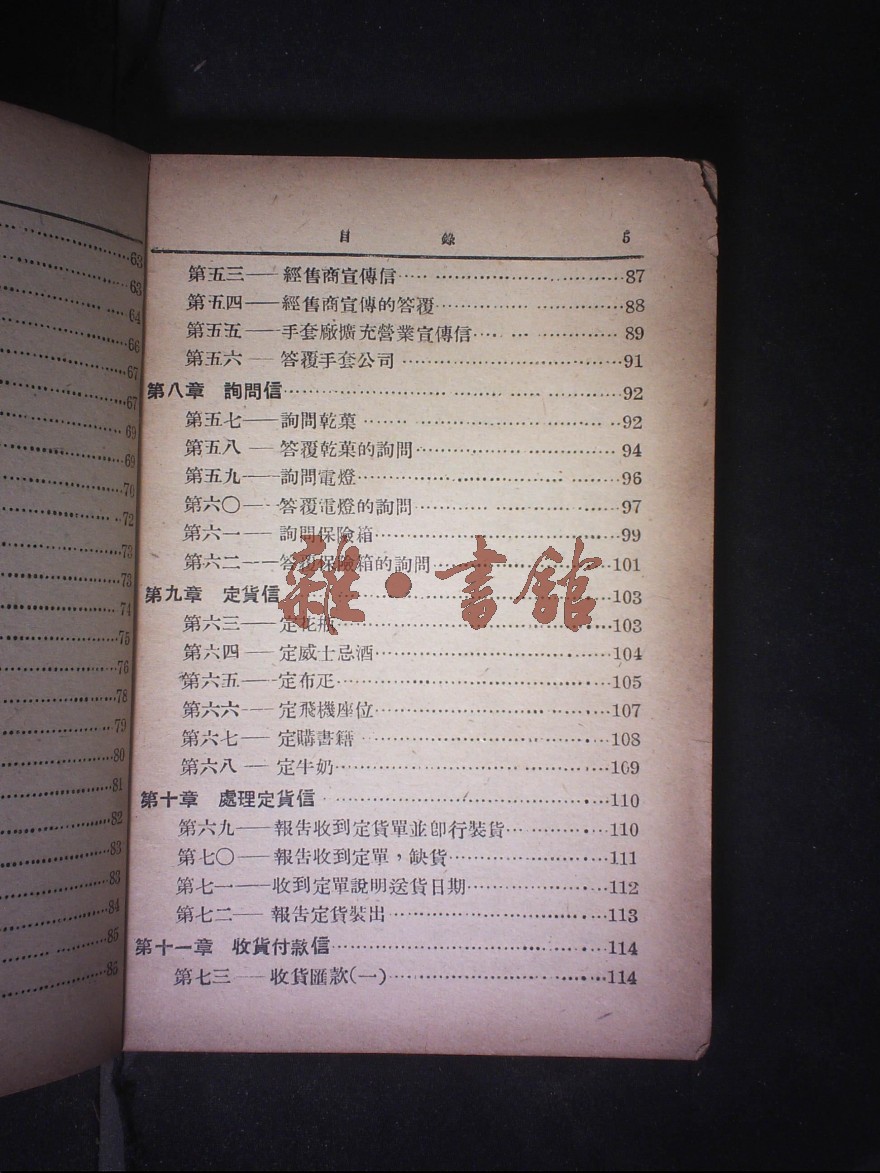 63
63
64
66
67
67
69
69
70
72
73
73
74
75
76
78
79
80
81
82
83
83
84
85
85
目 錄 5
第五三——經售商宣傳信……87
第五四——經售商宣傳的答覆……88
第五五——手套廠擴充營業宣傳信……89
第五六——答覆手套公司……91
第八章 詢問信……92
第五七——詢問乾菓……92
第五八——答覆乾菓的詢問……94
第五九——詢問電燈……96
第六〇——答覆電燈的詢問……97
第六一——詢問保險箱……99
第六二——答覆保險箱的詢問……101
第九章 定貨信……103
第六三——定花瓶……103
第六四——定威士忌酒……104
第六五——定布疋……105
第六六——定飛機座位……107
第六七——定購書籍……108
第六八——定牛奶……109
第十章 處理定貨信……110
第六九——報告收到定貨單並卽行裝貨……110
第七〇——報告收到定單，缺貨……111
第七一——收到定單說明送貨日期……112
第七二——報告定貨裝出……113
第十一章 收貨付款信……114
第七三——收貨匯款(一)……114
雜·書館